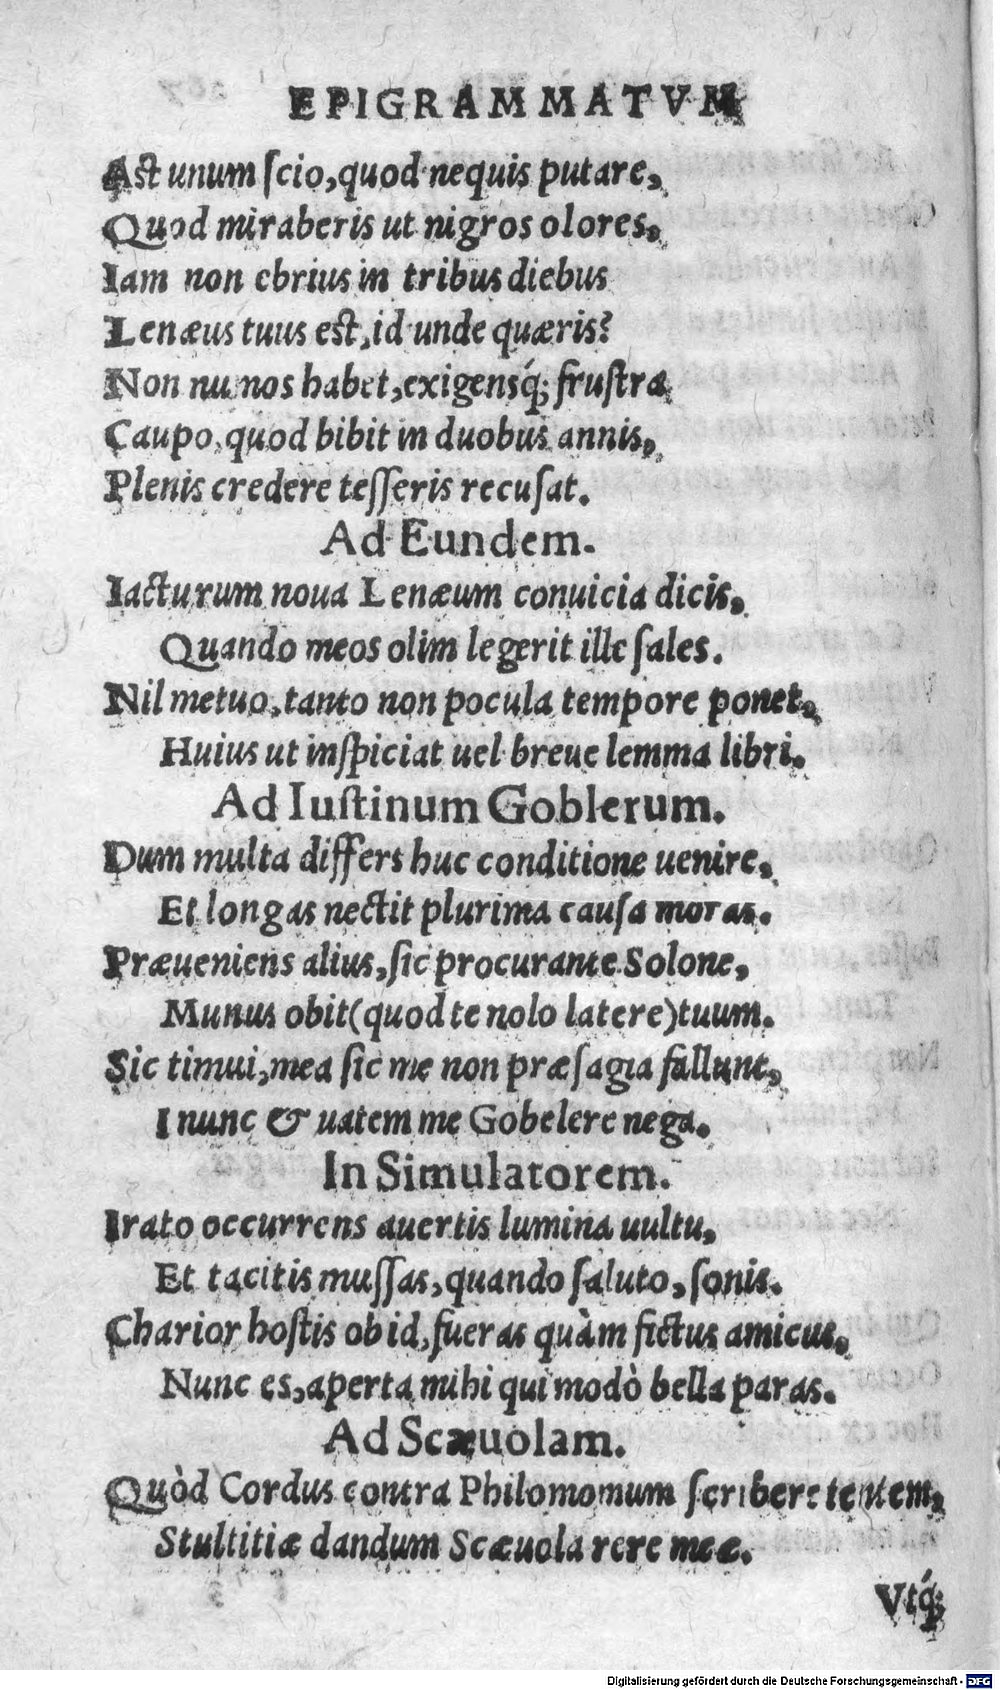 EPIGRAMMATVM
Ast unum scio, quod nequis putare,
Quod miraberis ut nigros olores,
Iam non ebrius in tribus diebus
Lenæus tuus est, id unde quæris?
Non numos habet, exigensq́; frustra
Caupo, quod bibit in duobus annis,
Plenis credere tesseris recusat.
Ad Eundem.
Iacturum noua Lenæum conuicia dicis,
Quando meos olim legerit ille sales.
Nil metuo, tanto non pocula tempore ponet,
Huius ut inspiciat uel breue lemma libri.
Ad Iustinum Goblerum.
Dum multa differs huc conditione uenire,
Et longas nectit plurima causa moras.
Præueniens alius, sic procurante Solone,
Munus obit (quod te nolo latere) tuum.
Sic timui, mea sic me non præsagia fallunt,
I nunc & uatem me Gobelere nega.
In Simulatorem.
Irato occurrens auertis lumina uultu,
Et tacitis mussas, quando saluto, sonis.
Charior hostis ob id, fueras quàm fictus amicus,
Nunc es, aperta mihi qui modò bella paras.
Ad Scæuolam.
Quòd Cordus contra Philomomum scribere tentem,
Stultitiæ dandum Scæuola rere meæ.
Vtq́;
Digitalisierung gefördert durch die Deutsche Forschungsgemeinschaft - DFG